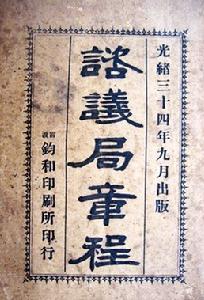 光緒三十四年九月出版
諮議局章程
鈞和印刷所印行